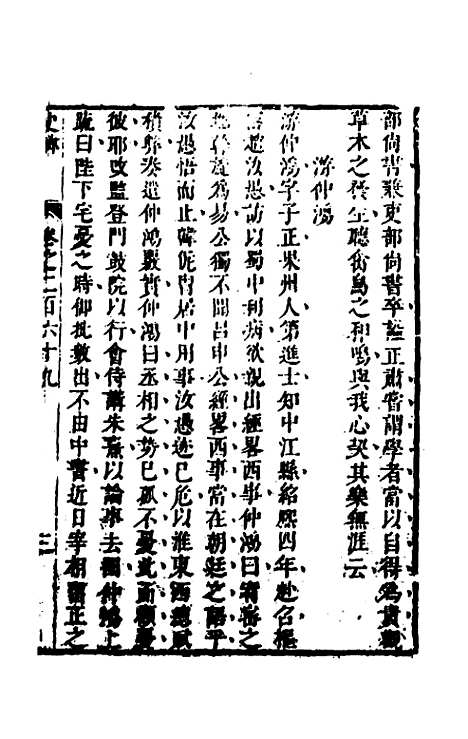 部尚書兼吏部尚書卒謚正肅嘗謂學者當以自得爲貴觀
草木之發生聽禽鳥之和鳴與我心契其樂無涯云
游仲鴻
游仲鴻字子正果州人第進士知中江縣紹熙四年赴召樞
趙汝愚訪以蜀中利病欲親出經畧西事仲鴻曰宥密之
地 易公獨不聞呂申公經畧西事當在朝廷之語乎
汝愚悟而止韓侂胄居中用事汝愚迹已危以淮東西總賦
積弊奏遣仲鴻覈實仲鴻曰丞相之勢已孤不憂此而顧憂
彼耶改監登門鼓院以行會侍講朱熹以論事去國仲鴻上
疏曰陛下宅憂之時御批數出不由中書近日宰相留正之
史 卷之二百六十九 三